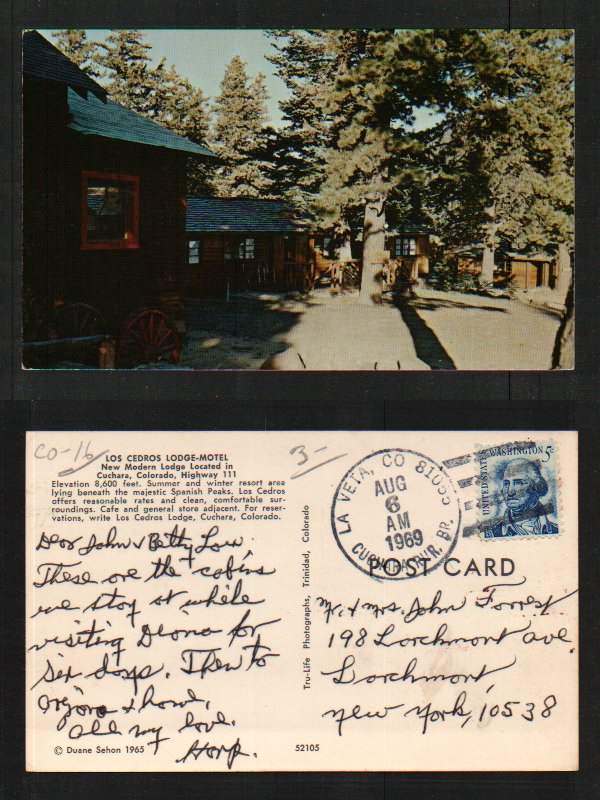 CO-16
3-
LOS CEDROS LODGE-MOTEL
New Modern Lodge Located in
Cuchara, Colorado, Highway 111
Elevation 8,600 feet. Summer and winter resort area
lying beneath the majestic Spanish Peaks. Los Cedros
offers reasonable rates and clean, comfortable sur-
roundings. Cafe and general store adjacent. For reser-
vations, write Los Cedros Lodge, Cuchara, Colorado.
Dear John & Betty Lou:
These are the cabins
we stay at while
visiting Diana for
six days. Then to
& home,
all my love.
© Duane Sehon 1965
52105
Tru-Life Photographs, Trinidad, Colorado
LA VETA, CO 81055
AUG
6
AM
1969
CUCHARA RUR. BR.
UNITED STATES
WASHINGTON 5c
POST CARD
Mr. & Mrs. John Forrest
198 Larchmont ave.
Larchmont,
New York, 10538